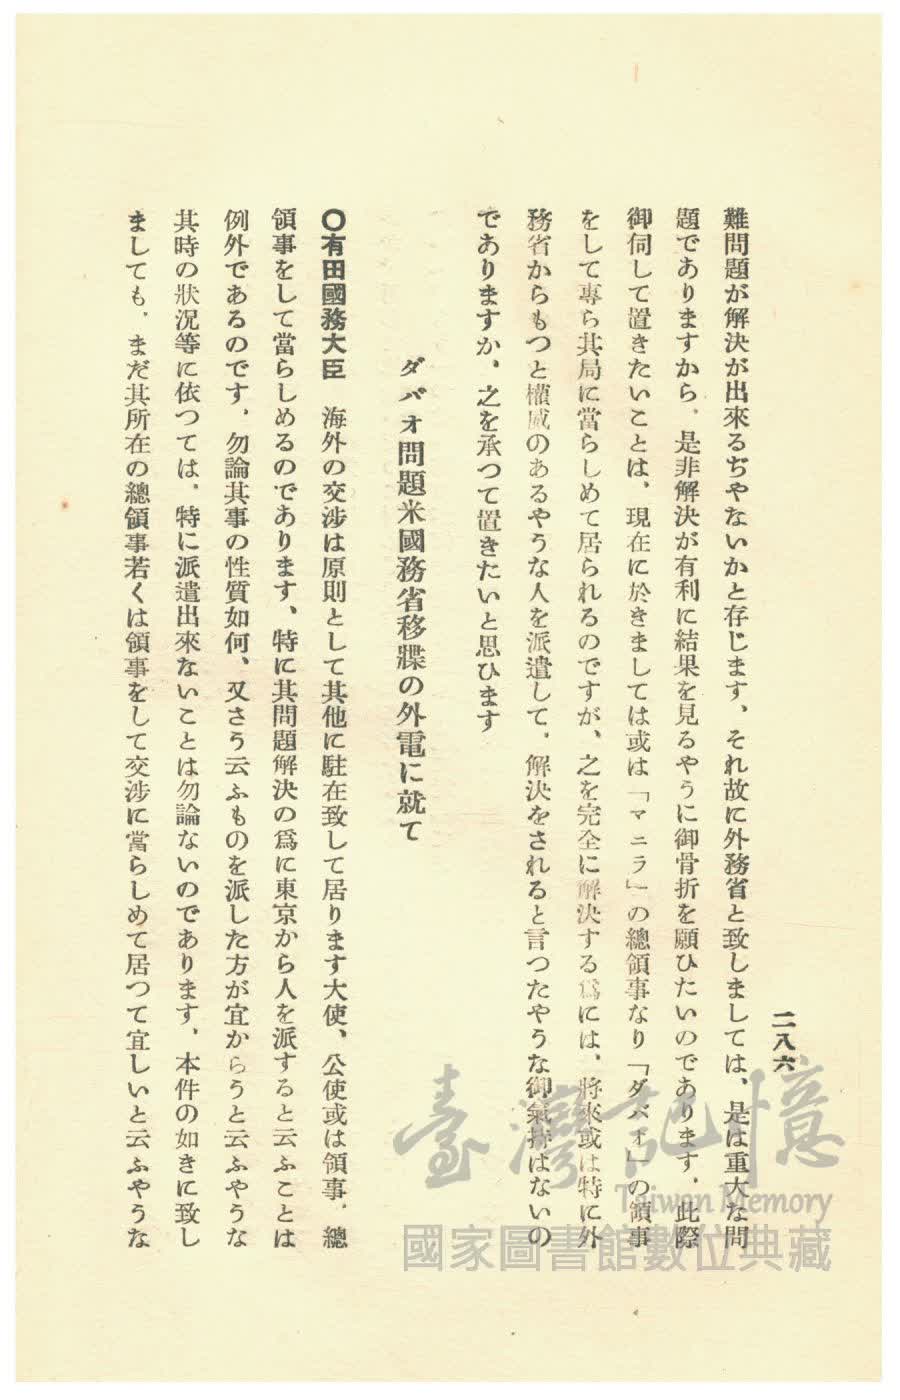 二八六
難問題が解決が出來るぢやないかと存じます、それ故に外務省と致しましては、是は重大な問
題でありますから、是非解決が有利に結果を見るやうに御骨折を願ひたいのであります、此際
御伺して置きたいことは、現在に於きましては或は「マニラ」の總領事なり「ダバオ」の領事
をして專ら其局に當らしめて居られるのですが、之を完全に解決する爲には、將來或は特に外
務省からもつと權威のあるやうな人を派遣して、解決をされると言つたやうな御氣持はないの
でありますか、之を承つて置きたいと思ひます
ダバオ問題米國務省移牒の外電に就て
〇有田國務大臣　海外の交渉は原則として其他に駐在致して居ります大使、公使或は領事、總
領事をして當らしめるのであります、特に其問題解決の爲に東京から人を派すると云ふことは
例外であるのです、勿論其事の性質如何、又さう云ふものを派した方が宜からうと云ふやうな
其時の狀況等に依つては、特に派遣出來ないことは勿論ないのであります、本件の如きに致し
ましても、まだ其所在の總領事若くは領事をして交渉に當らしめて居つて宜しいと云ふやうな
臺灣記憶
Taiwan Memory
國家圖書館數位典藏